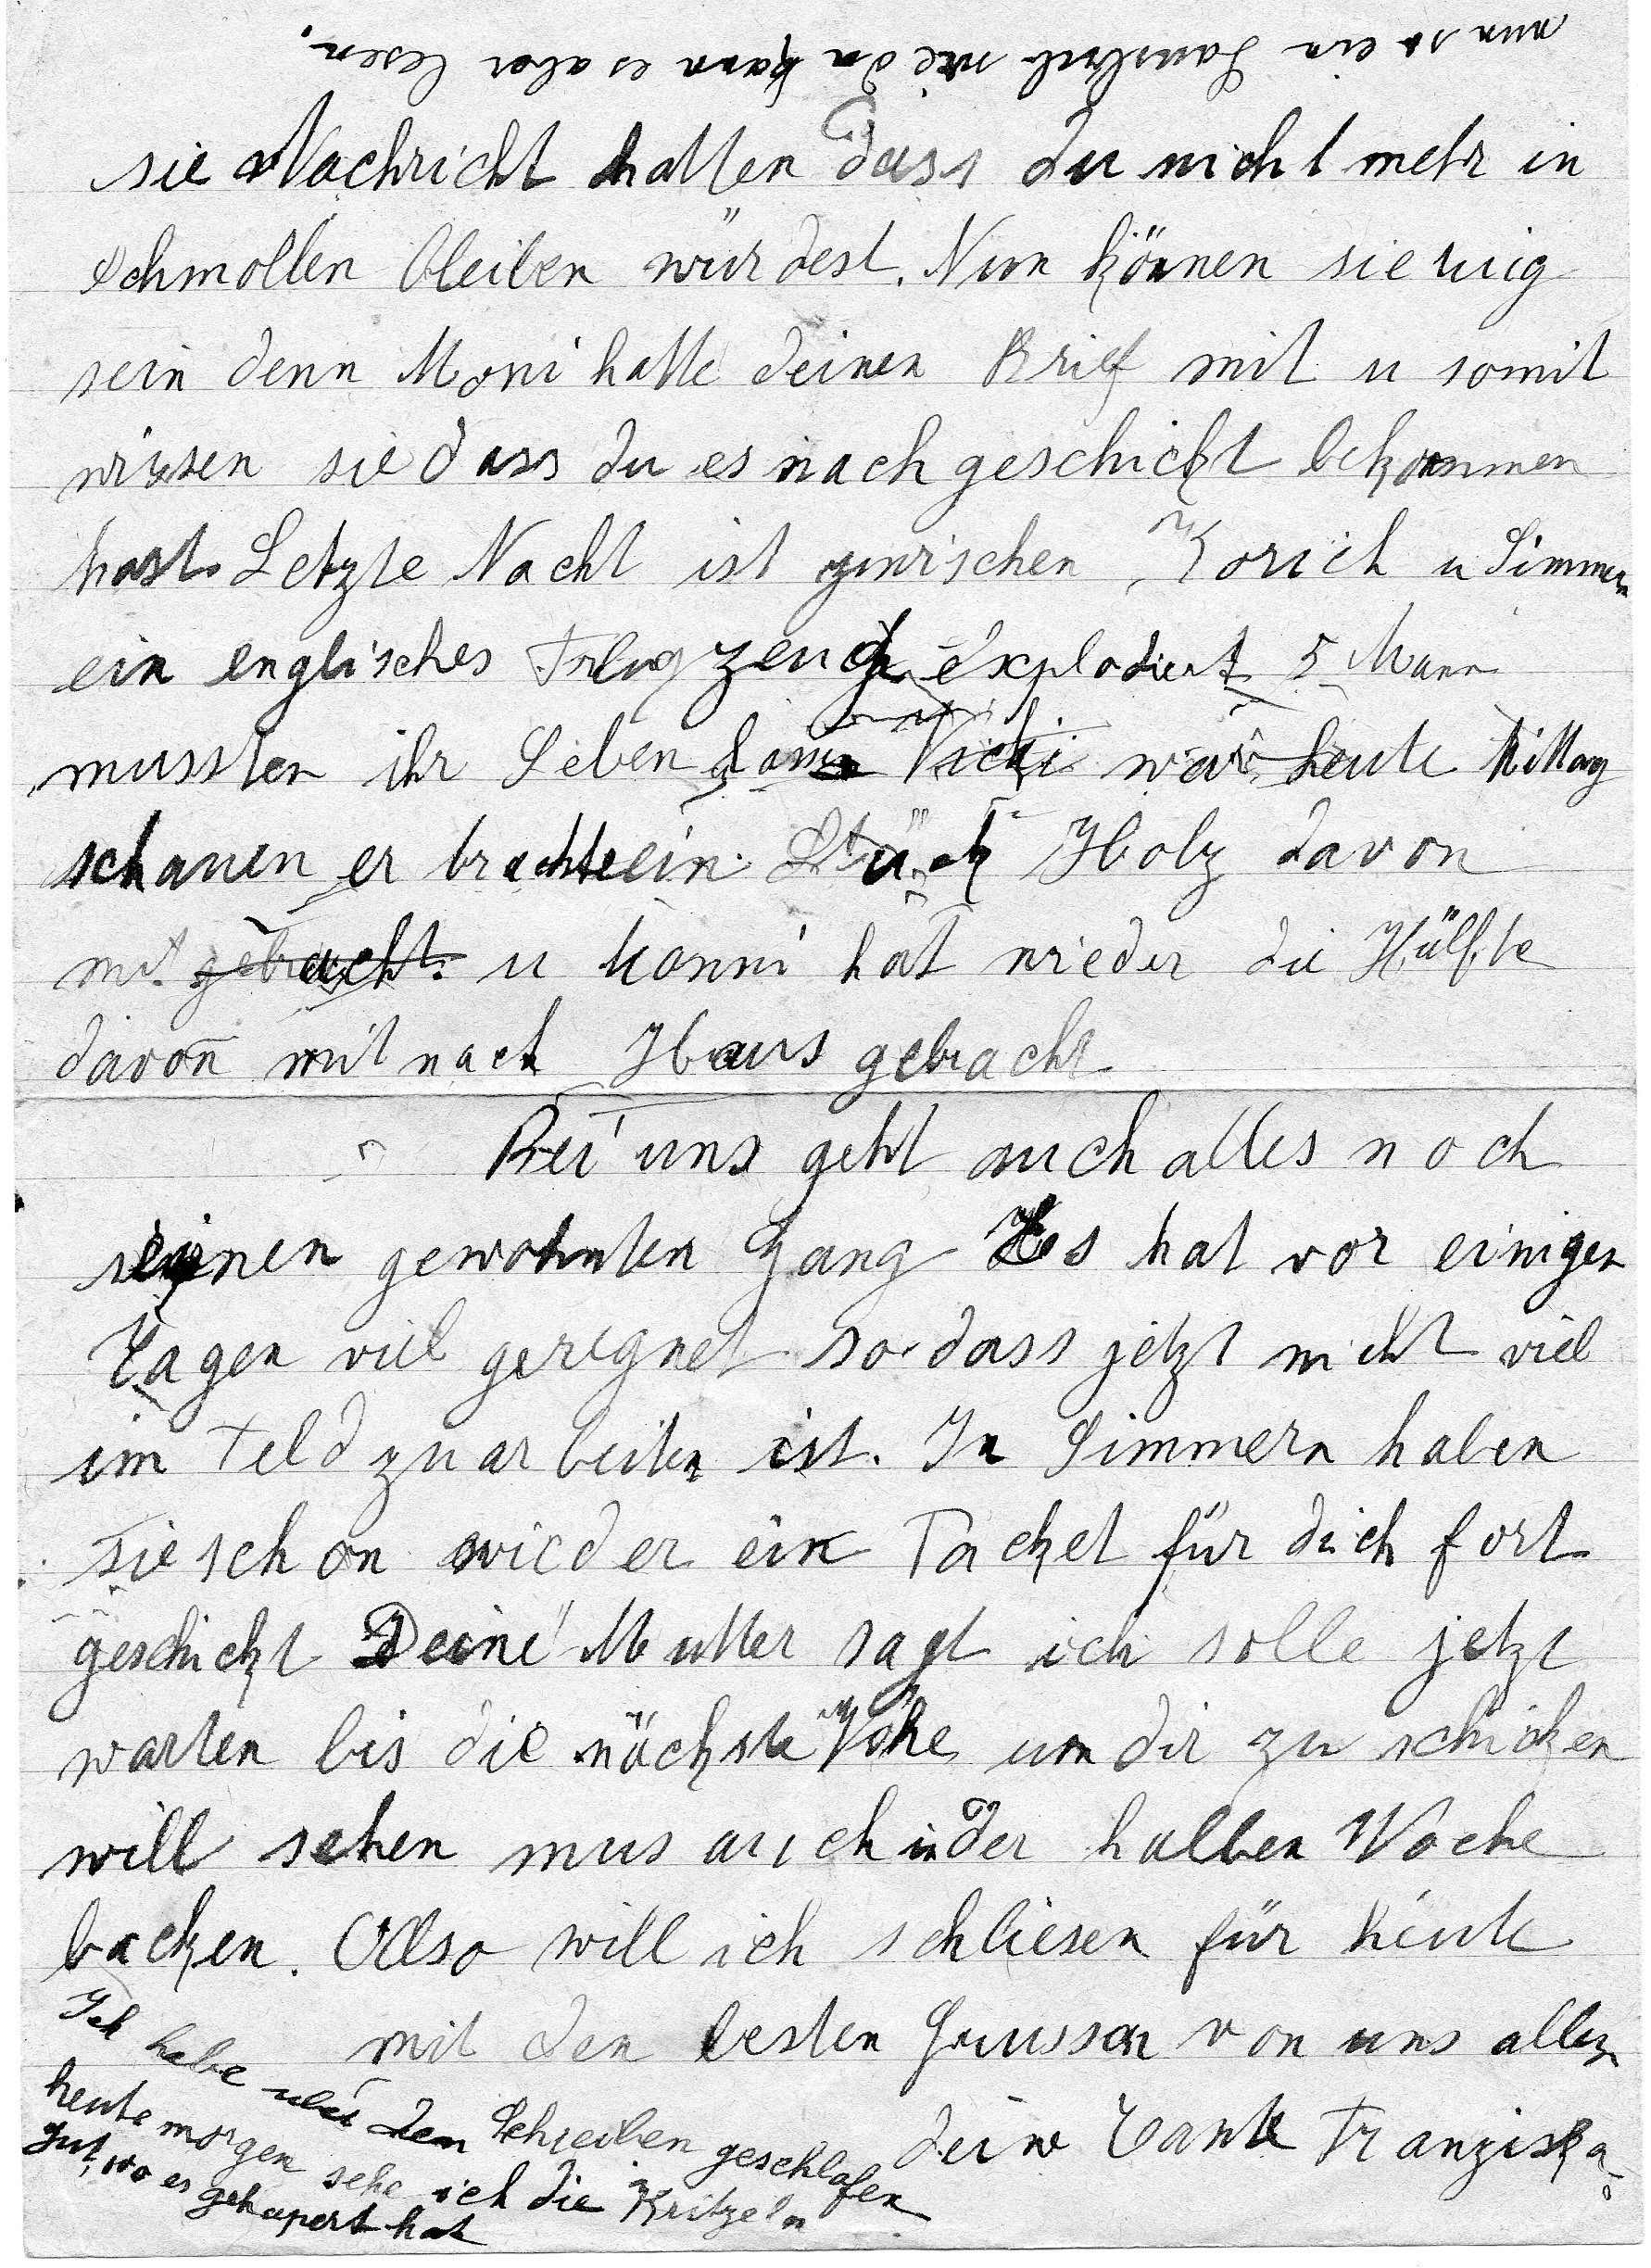 nun so ein Lausbub wie du kann es aber lesen.
sie Nachricht hatten dass du nicht mehr in
Schmollen bleiben würdest. Nun können sie ruig
sein denn Moni hatte deinen Brief mit u somit
wissen sie dass du es nachgeschickt bekommen
hast. Letzte Nacht ist zwischen Korich u Simmern
ein englisches Flugzeug explodiert 5 Mann
mussten ihr Leben Vicki war heute Mittag
schauen er brachte ein Stück Holz davon
mit gebracht. u Konni hat wieder die Hälfte
davon mit nach Haus gebracht
Bei uns geht auch alles noch
seinen gewohnten Gang Es hat vor einigen
Tagen viel geregnet so dass jetzt nicht viel
im Feld zu arbeiten ist. In Simmern haben
sie schon wieder ein Packet für dich fort
geschickt Deine Mutter sagt ich solle jetzt
warten bis die nächste Wohe um dir zu schicken
will sehen mus auch in der halben Woche
backen. Also will ich schliesen für heute
mit den besten Grussen von uns allen
deine Tante Franziska.
Ich habe über dem Schreiben geschlafen
heute morgen sehe ich die Kritzeln
gut, wo es gehapert hat